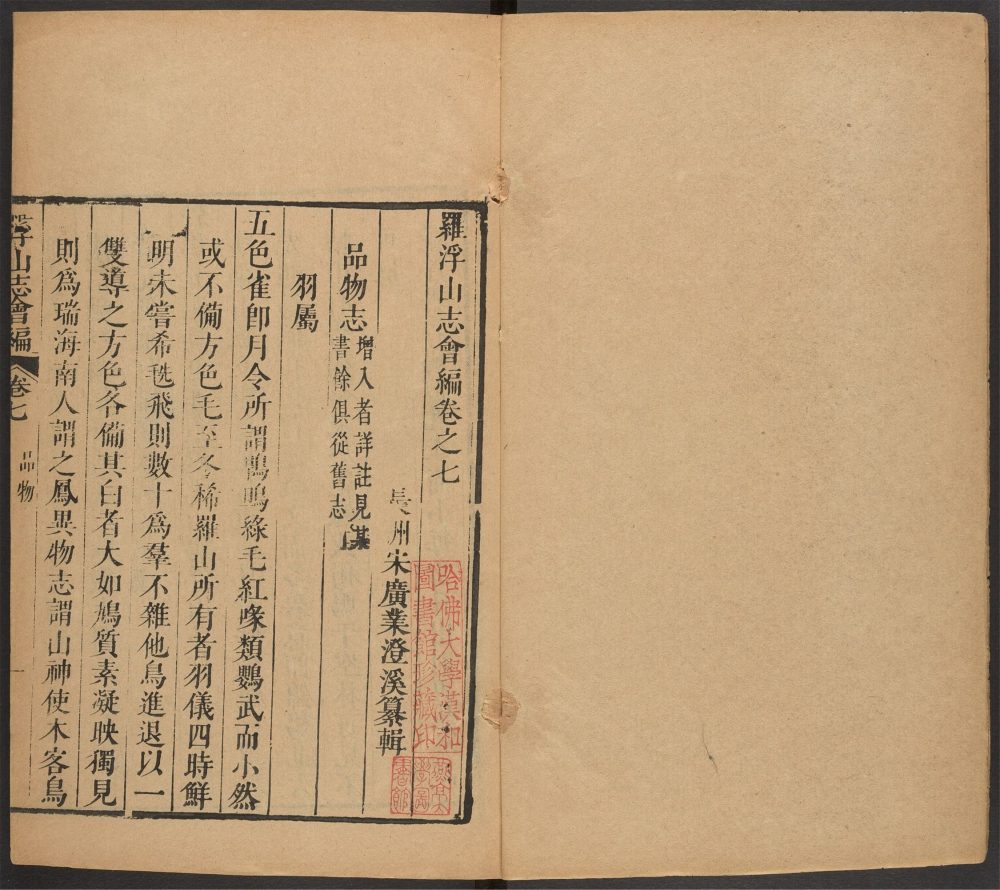 羅浮山志會編卷之七
長州宋廣業澄溪纂輯
品物志
增入者詳註見某
書餘俱從舊志
羽屬
五色雀卽月令所謂鶡鴠綠毛紅喙類鸚武而小然
或不備方色毛至冬稀羅山所有者羽儀四時鮮
明未嘗希毨飛則數十爲羣不雜他鳥進退以一
雙導之方色各備其白者大如鳩質素凝映獨見
則爲瑞海南人謂之鳳異物志謂山神使木客鳥
浮山志會編
卷七
品物
一
哈佛大學漢和
圖書館珍藏印